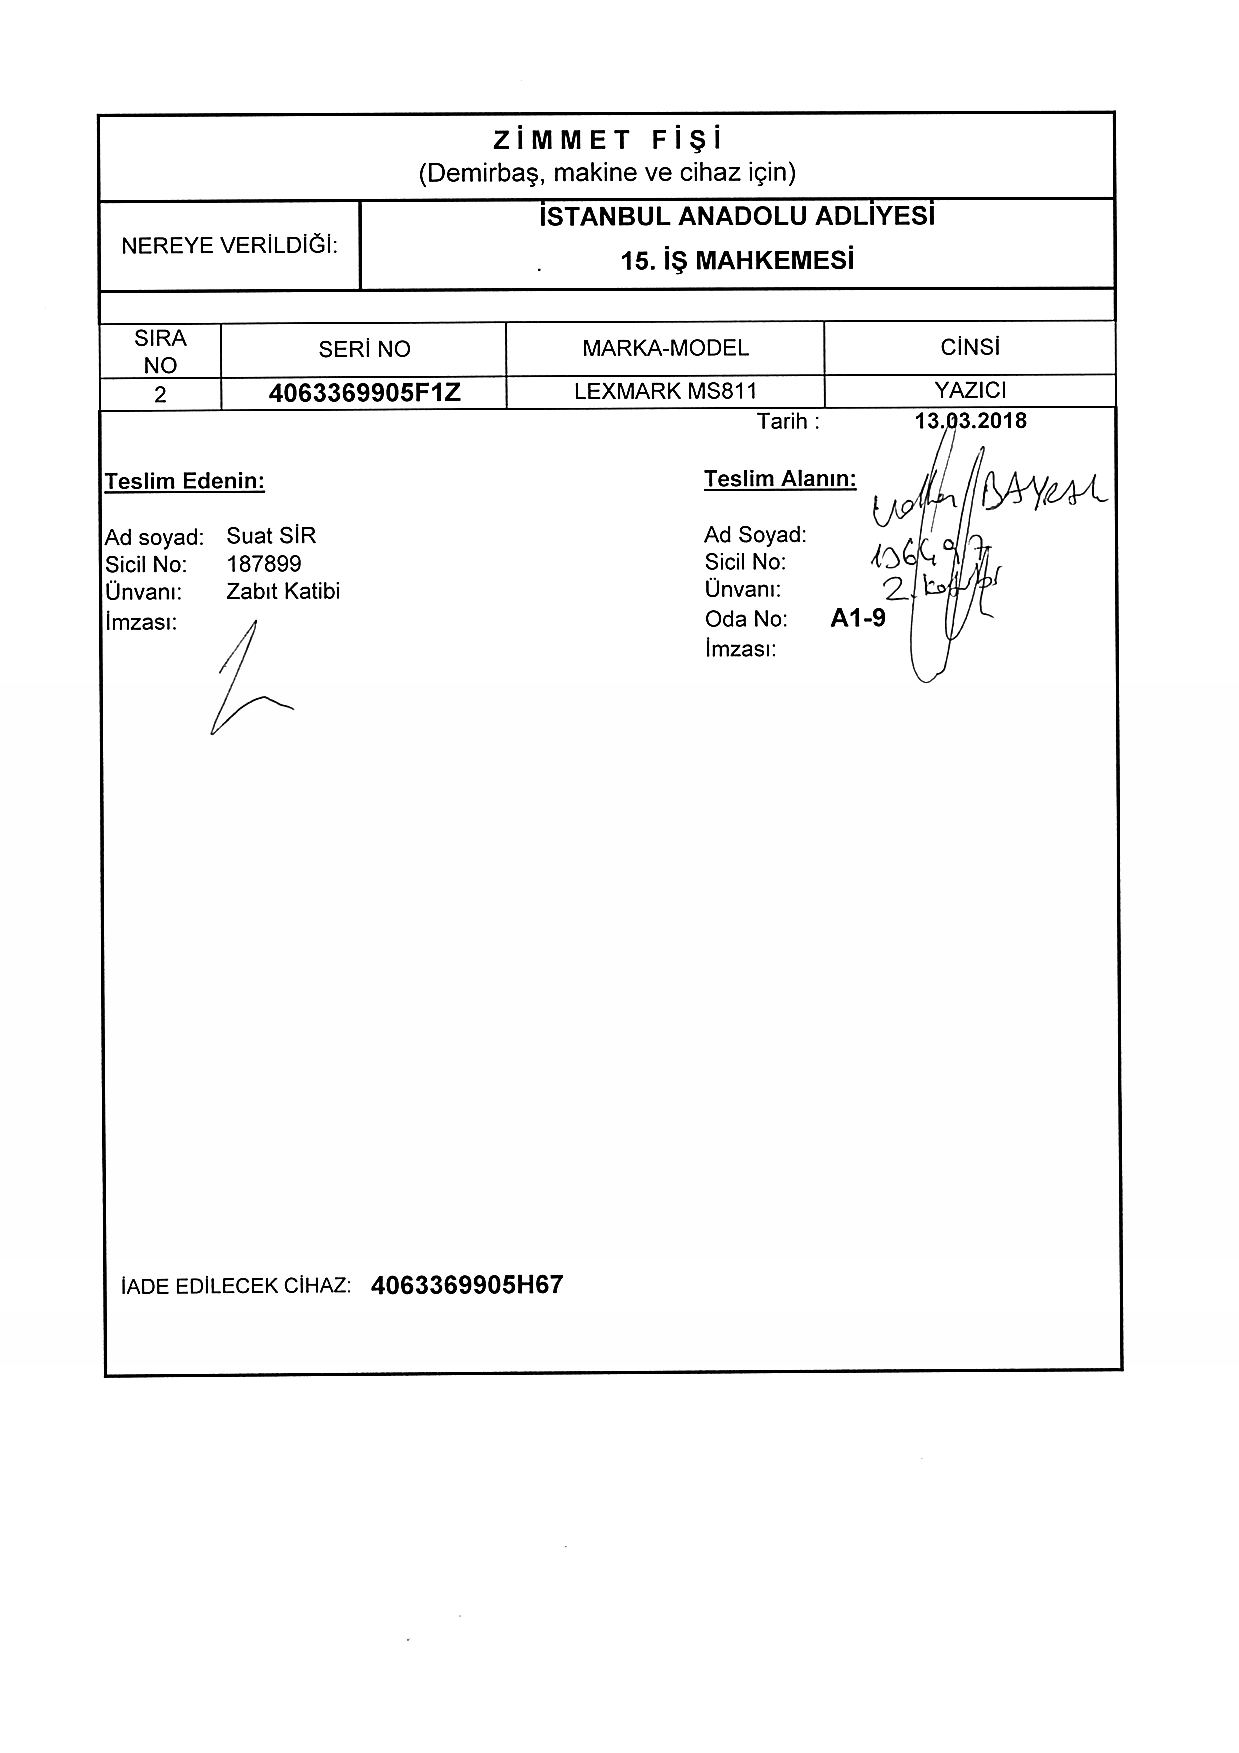 ZİMMET FİŞİ
(Demirbaş, makine ve cihaz için)
NEREYE VERİLDİĞİ:
İSTANBUL ANADOLU ADLİYESİ
15. İŞ MAHKEMESİ
SIRA NO SERİ NO MARKA-MODEL CİNSİ
2 4063369905F1Z LEXMARK MS811 YAZICI
Tarih : 13.03.2018
Teslim Edenin:
Ad soyad: Suat SİR
Sicil No: 187899
Ünvanı: Zabıt Katibi
İmzası:
Teslim Alanın:
Ad Soyad:
Sicil No:
Ünvanı:
Oda No: A1-9
İmzası:
İADE EDİLECEK CİHAZ: 4063369905H67